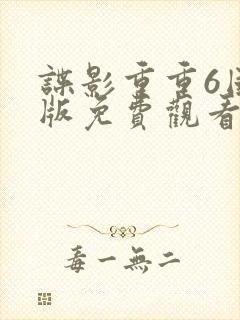 諜影重重6
版免費觀看
毒一無二